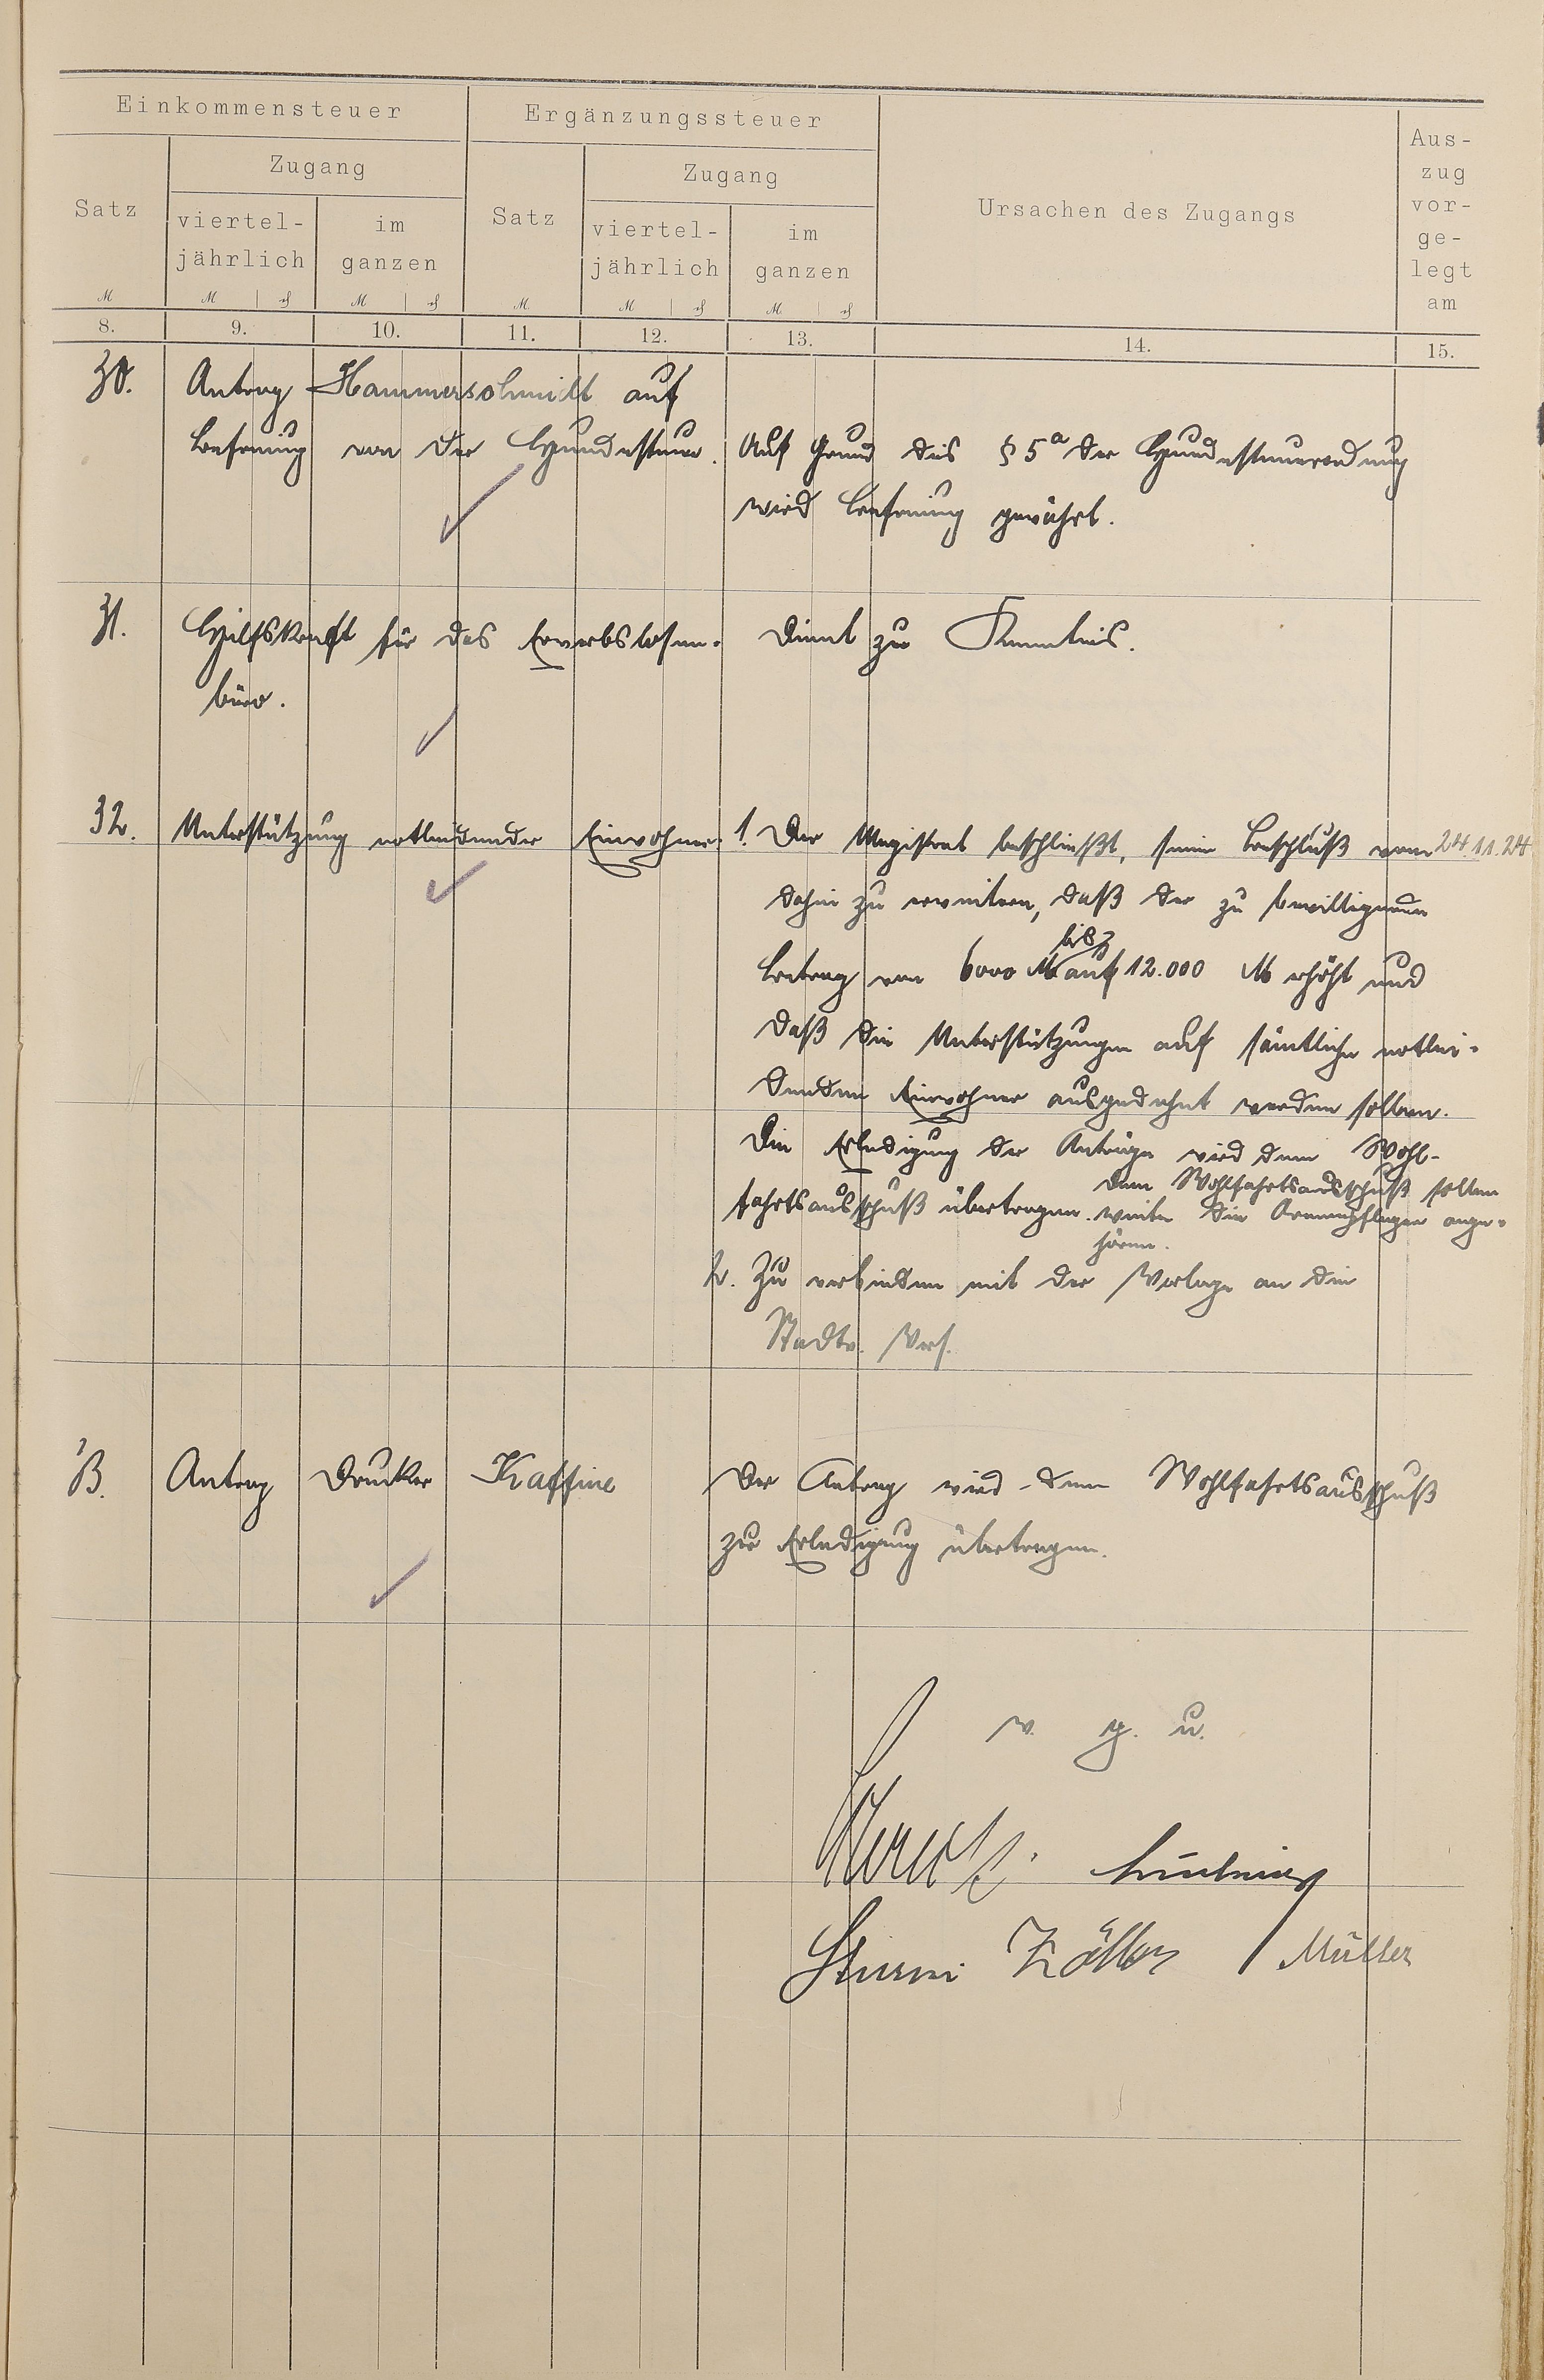 Einkommensteuer
Ergänzungssteuer
Ursachen des Zugangs
Aus-
zug
vor-
ge-
legt
am
Satz
Zugang
viertel-
jährlich
im
ganzen
Satz
Zugang
viertel-
jährlich
im
ganzen
M M ₰ M ₰ M M ₰ M ₰
8. 9. 10. 11. 12. 13. 14. 15.
30. Antrag Hammerschmidt auf
Befreiung von der Hundesteuer. Auf Grund des § 5a der Hundesteuerordnung
wird Befreiung gewährt.
31. Hilfskraft für das Erwerbslosen- Dient zu Kenntnis.
büro.
32. Unterstützung notleidender Einwohner. 1. Der Magistrat beschließt, seinen Beschluß vom 24.11.24
dahin zu erweitern, daß der zu bewilligende
bis
Betrag von 6000 M auf 12.000 M erhöht und
daß die Unterstützungen auf sämtliche notlei-
denden Einwohner ausgedehnt werden sollen.
Die Erledigung der Anträge wird dem Wohl-
fahrtsausschuß übertragen. Dem Wohlfahrtsausschuß sollen
weiter die Armenpfleger ange-
hören.
2. Zu verbinden mit der Vorlage an die
Stadtv. Vers.
33. Antrag Drucker Kaffine Der Antrag wird dem Wohlfahrtsausschuß
zur Erledigung übertragen.
v. g. u.
Sturm Müller